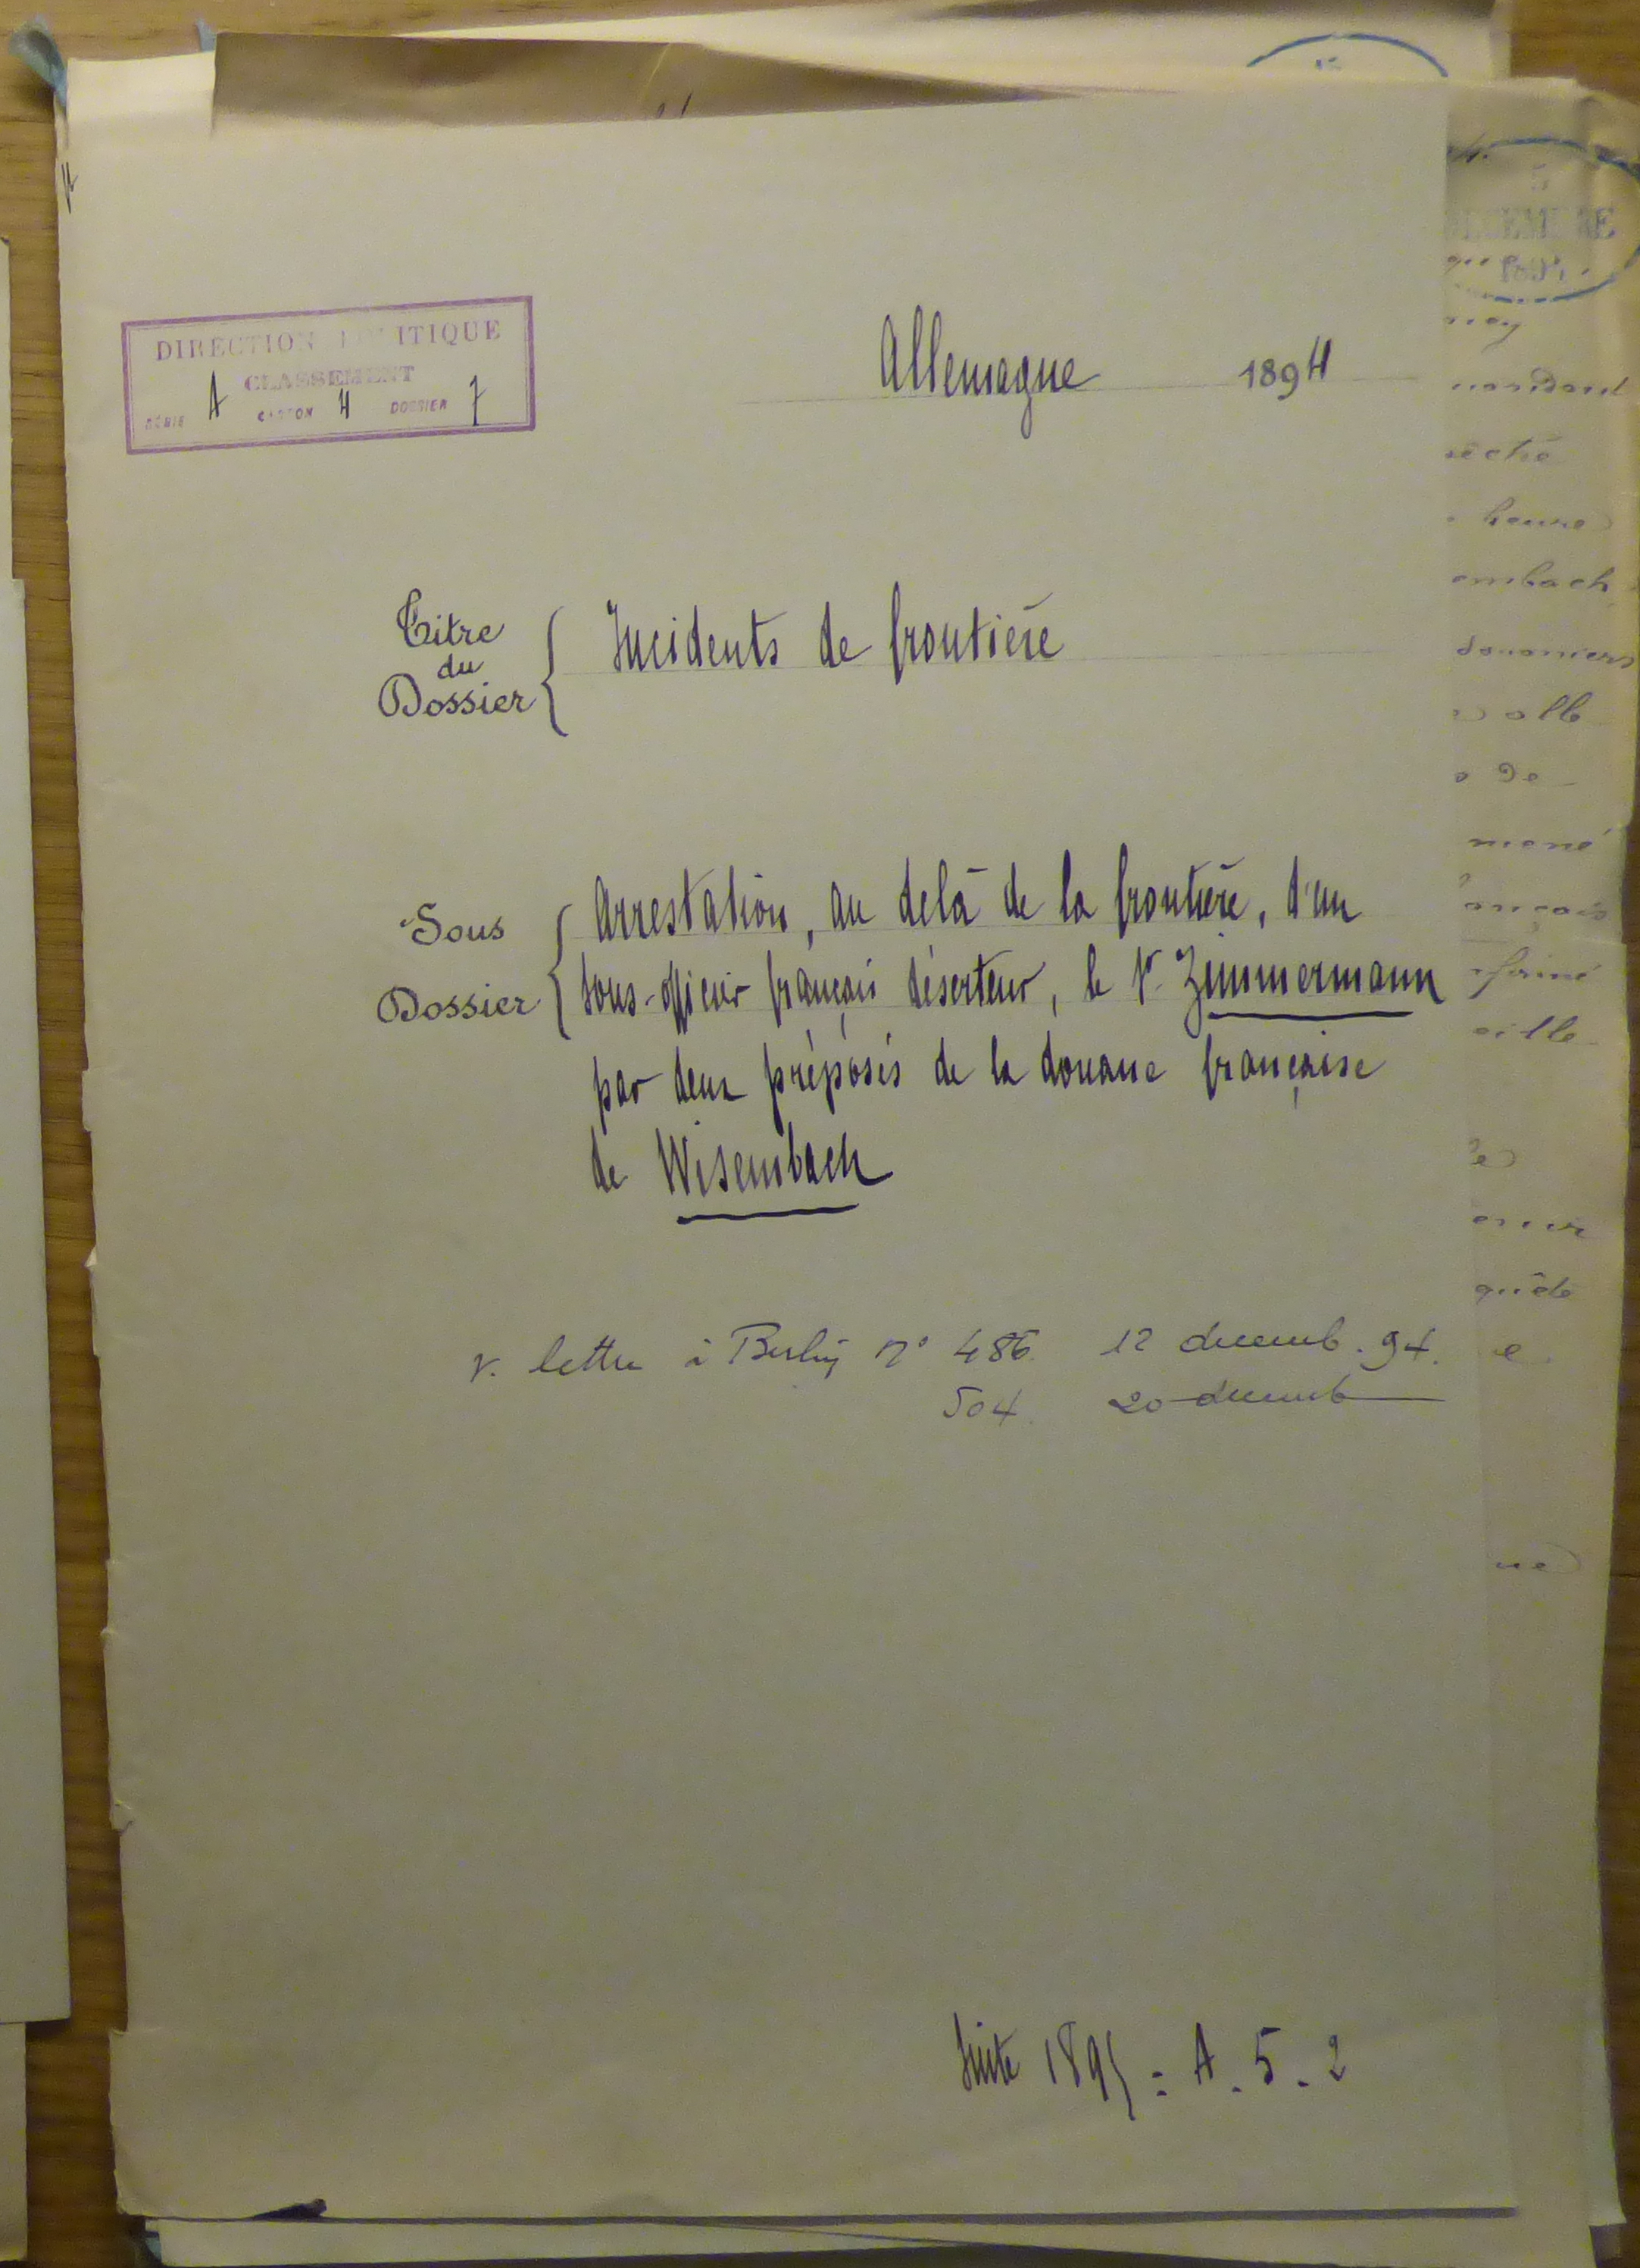 DIRECTION POLITIQUE
CLASSEMENT
SÉRIE A CARTON 4 DOSSIER 7
Allemagne 1894
Titre
du
Dossier
Incidents de frontière
Sous
Dossier
Arrestation, au delà de la frontière, d'un
sous-officier français déserteur, le Sr. Zimmermann
par deux préposés de la douane française
de Wisembach
v. lettre à Berlin n° 486. 12 decemb. 94.
504. 20 decemb
Suite 1895 = A. 5. 2
5
DECEMBRE
1894
heures
embach
douaniers
de
mené